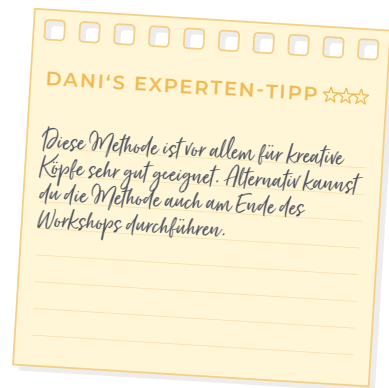 DANI‘S EXPERTEN-TIPP
Diese Methode ist vor allem für kreative
Köpfe sehr gut geeignet. Alternativ kannst
du die Methode auch am Ende des
Workshops durchführen.